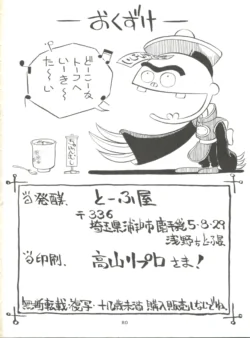 — おくずけ —
どーこーか
トーフへ
いーきー
たーい
当発酵. とーふ屋
〒336
埼玉県浦和市鹿手袋5-8-29
浅野ちとふ寝
当印刷. 高山リプロさま!
無断転載・複写・十八歳未満購入販売しないどくれ
80